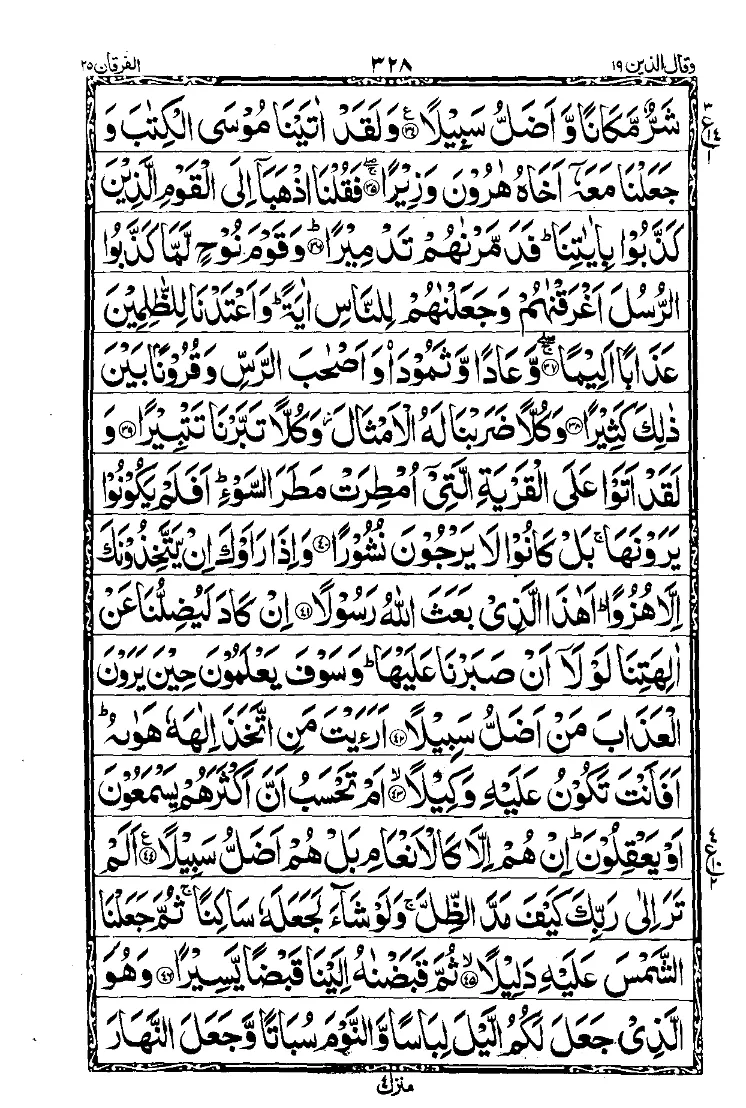 وقال الذين ١٩ ٣٢٨ الفرقان ٢٥
شَرٌّ مَّكَانًا وَّ اَضَلُّ سَبِيْلًا ﴿٣٤﴾ ع وَ لَقَدْ اٰتَيْنَا مُوْسَى الْكِتٰبَ وَ
جَعَلْنَا مَعَهٗۤ اَخَاهُ هٰرُوْنَ وَزِيْرًا ﴿٣٥﴾ فَقُلْنَا اذْهَبَاۤ اِلَى الْقَوْمِ الَّذِيْنَ
كَذَّبُوْا بِاٰيٰتِنَا ؕ فَدَمَّرْنٰهُمْ تَدْمِيْرًا ﴿٣٦﴾ ؕ وَ قَوْمَ نُوْحٍ لَّمَّا كَذَّبُوا
الرُّسُلَ اَغْرَقْنٰهُمْ وَ جَعَلْنٰهُمْ لِلنَّاسِ اٰيَةً ؕ وَ اَعْتَدْنَا لِلظّٰلِمِيْنَ
عَذَابًا اَلِيْمًا ﴿٣٧﴾ وَّ عَادًا وَّ ثَمُوْدَا۠ وَ اَصْحٰبَ الرَّسِّ وَ قُرُوْنًۢا بَيْنَ
ذٰلِكَ كَثِيْرًا ﴿٣٨﴾ وَ كُلًّا ضَرَبْنَا لَهُ الْاَمْثَالَ ؗ وَ كُلًّا تَبَّرْنَا تَتْبِيْرًا ﴿٣٩﴾ وَ
لَقَدْ اَتَوْا عَلَى الْقَرْيَةِ الَّتِيْۤ اُمْطِرَتْ مَطَرَ السَّوْءِ ؕ اَفَلَمْ يَكُوْنُوْا
يَرَوْنَهَا ۚ بَلْ كَانُوْا لَا يَرْجُوْنَ نُشُوْرًا ﴿٤٠﴾ وَ اِذَا رَاَوْكَ اِنْ يَّتَّخِذُوْنَكَ
اِلَّا هُزُوًا ؕ اَهٰذَا الَّذِيْ بَعَثَ اللّٰهُ رَسُوْلًا ﴿٤١﴾ اِنْ كَادَ لَيُضِلُّنَا عَنْ
اٰلِهَتِنَا لَوْ لَاۤ اَنْ صَبَرْنَا عَلَيْهَا ؕ وَ سَوْفَ يَعْلَمُوْنَ حِيْنَ يَرَوْنَ
الْعَذَابَ مَنْ اَضَلُّ سَبِيْلًا ﴿٤٢﴾ اَرَءَيْتَ مَنِ اتَّخَذَ اِلٰهَهٗ هَوٰىهُ ؕ
اَفَاَنْتَ تَكُوْنُ عَلَيْهِ وَكِيْلًا ﴿٤٣﴾ ۙ اَمْ تَحْسَبُ اَنَّ اَكْثَرَهُمْ يَسْمَعُوْنَ
اَوْ يَعْقِلُوْنَ ؕ اِنْ هُمْ اِلَّا كَالْاَنْعَامِ بَلْ هُمْ اَضَلُّ سَبِيْلًا ﴿٤٤﴾ ع اَلَمْ
تَرَ اِلٰى رَبِّكَ كَيْفَ مَدَّ الظِّلَّ ۚ وَ لَوْ شَآءَ لَجَعَلَهٗ سَاكِنًا ۚ ثُمَّ جَعَلْنَا
الشَّمْسَ عَلَيْهِ دَلِيْلًا ﴿٤٥﴾ ۙ ثُمَّ قَبَضْنٰهُ اِلَيْنَا قَبْضًا يَّسِيْرًا ﴿٤٦﴾ وَ هُوَ
الَّذِيْ جَعَلَ لَكُمُ الَّيْلَ لِبَاسًا وَّ النَّوْمَ سُبَاتًا وَّ جَعَلَ النَّهَارَ
منزل ٤